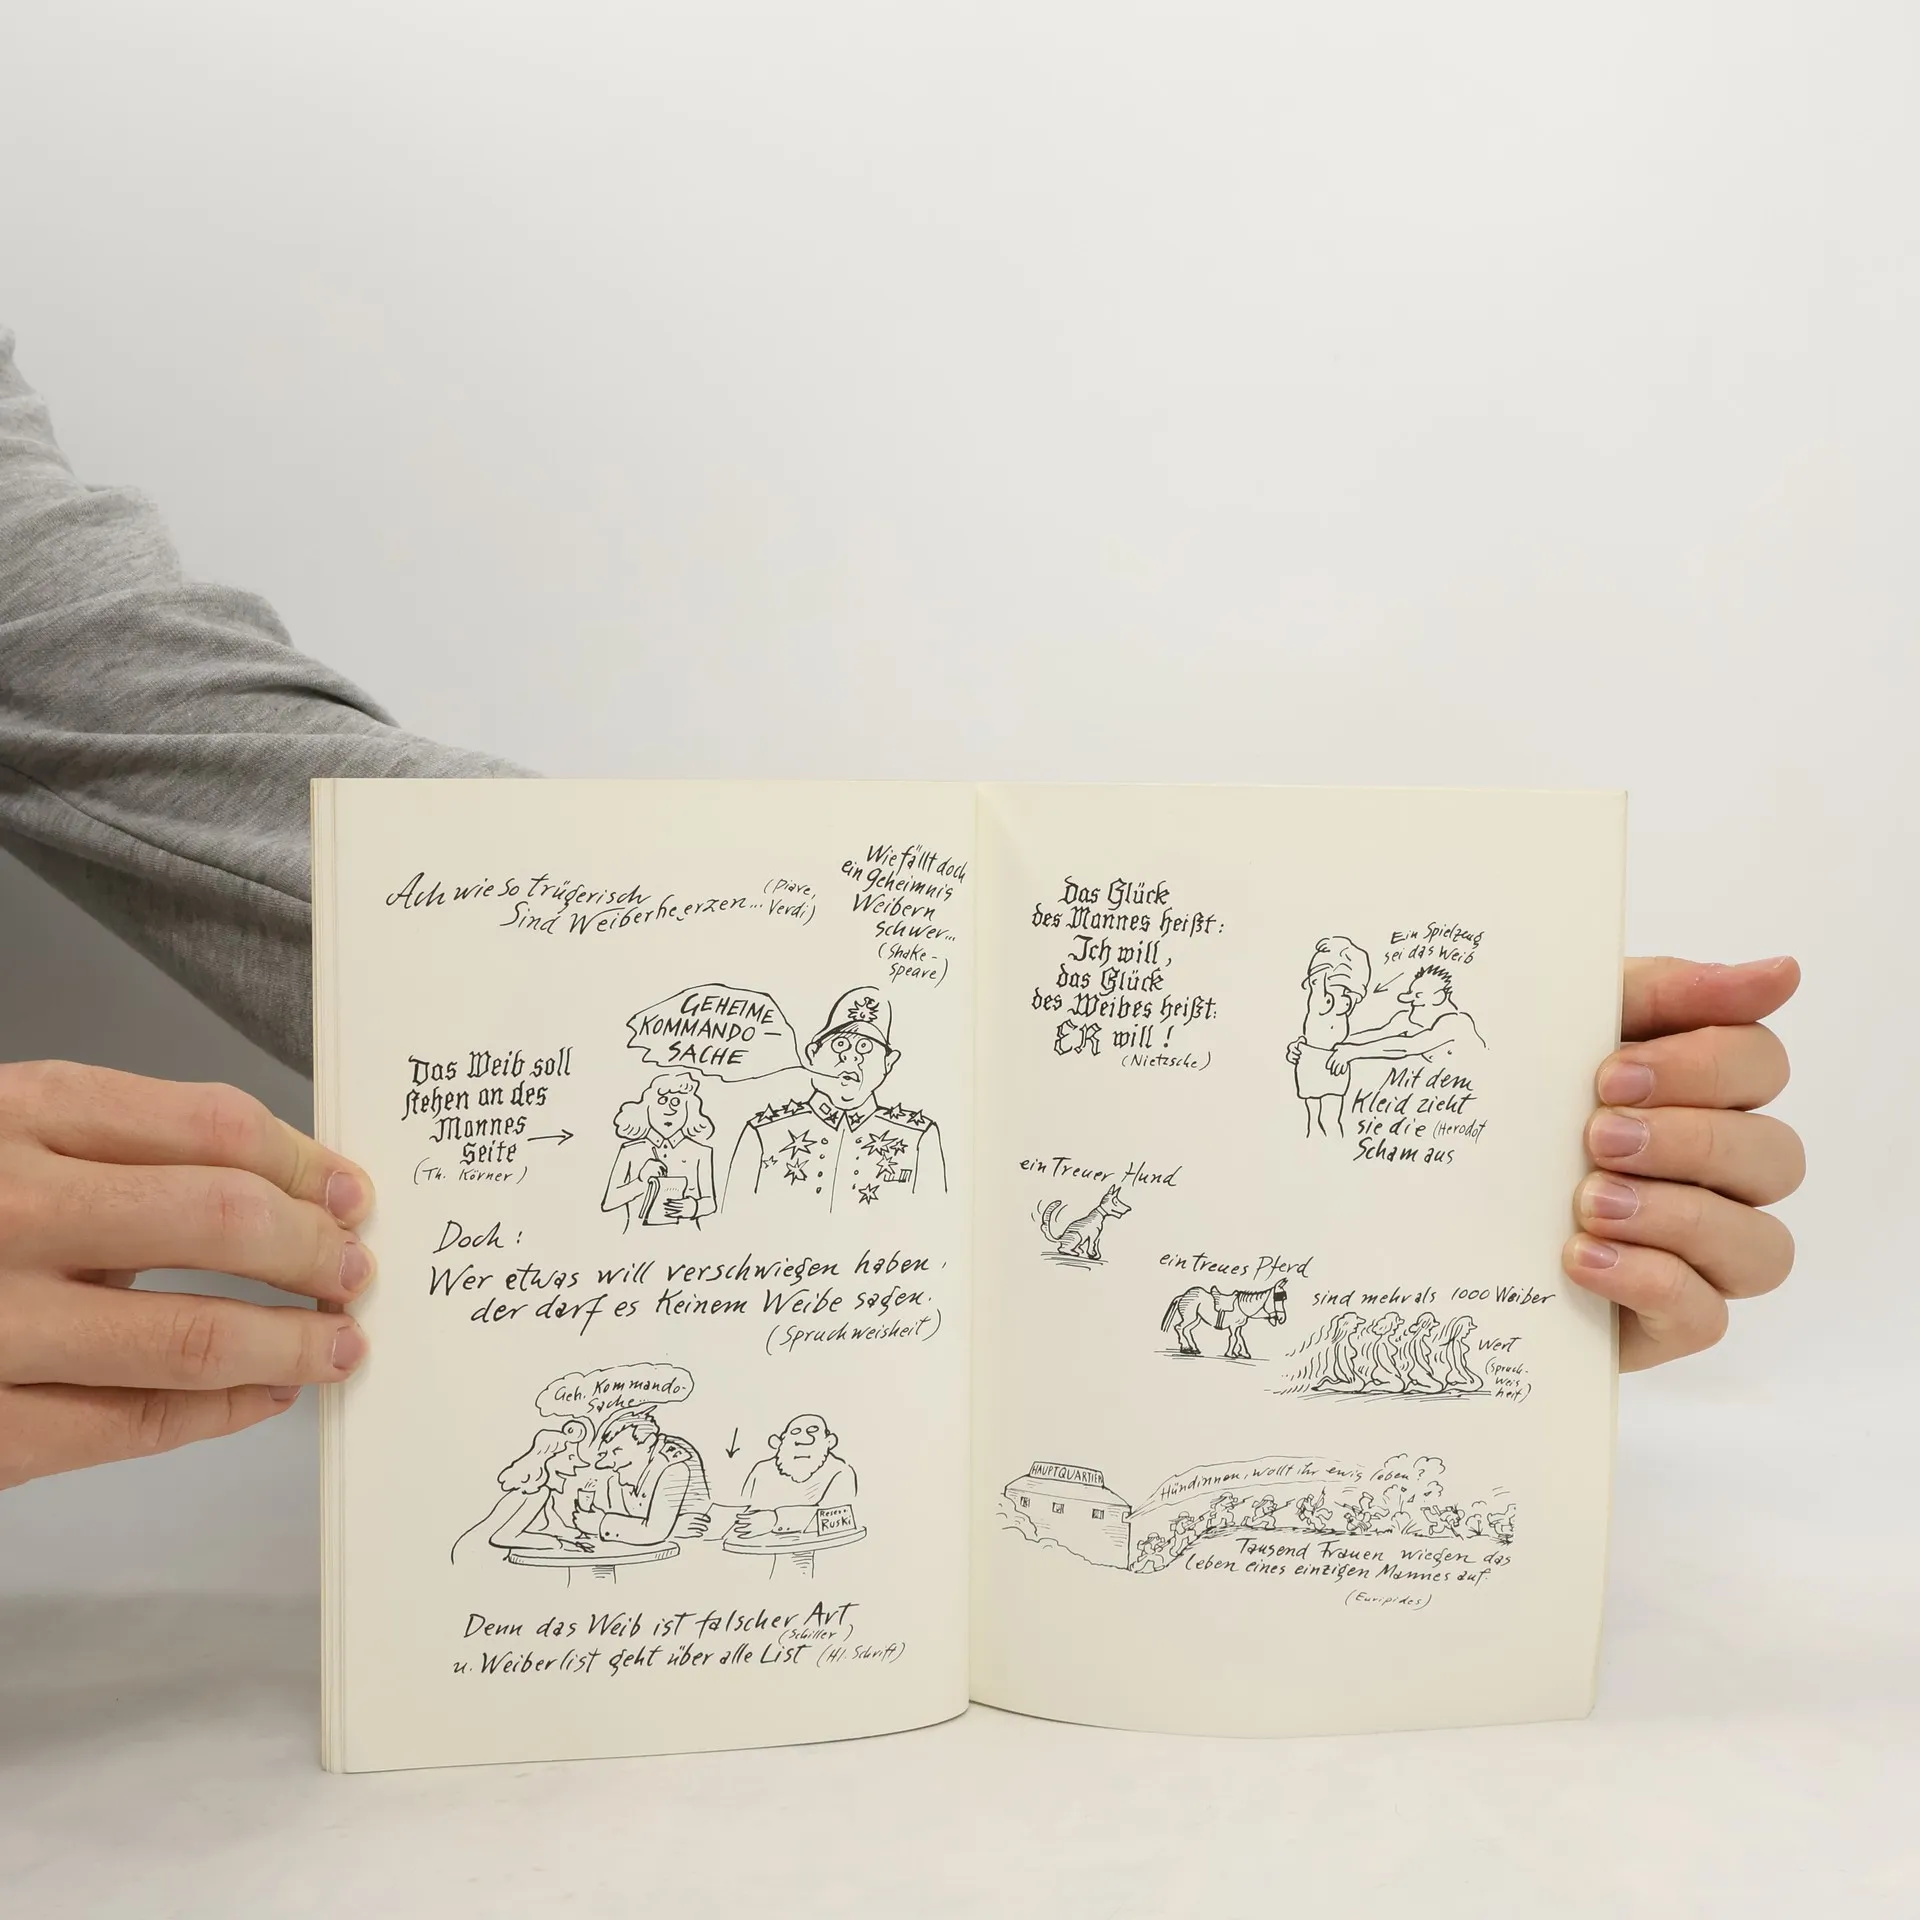 Ach wie so trügerisch
Sind Weiberheerzen...
(Piave,
Verdi)
Wie fällt doch
ein Geheimnis
Weibern
schwer...
(Shake-
speare)
GEHEIME
KOMMANDO-
SACHE
Das Weib soll
stehen an des
Mannes
Seite
(Th. Körner)
Doch:
Wer etwas will verschwiegen haben,
der darf es Keinem Weibe sagen.
(Spruchweisheit)
Geh. Kommando-
Sache...
Ruski
Denn das Weib ist falscher Art,
(Schiller)
u. Weiberlist geht über alle List (Hl. Schrift)
Das Glück
des Mannes heißt:
Ich will,
das Glück
des Weibes heißt:
ER will!
(Nietzsche)
Ein Spielzeug
sei das Weib
Mit dem
Kleid zieht
sie die (Herodot
Scham aus
ein Treuer Hund
ein treues Pferd
sind mehr als 1000 Weiber
Wert
(Spruch-
weis
heit)
HAUPTQUARTIER
Hündinnen, wollt ihr ewig leben?
Tausend Frauen wiegen das
Leben eines einzigen Mannes auf.
(Euripides)